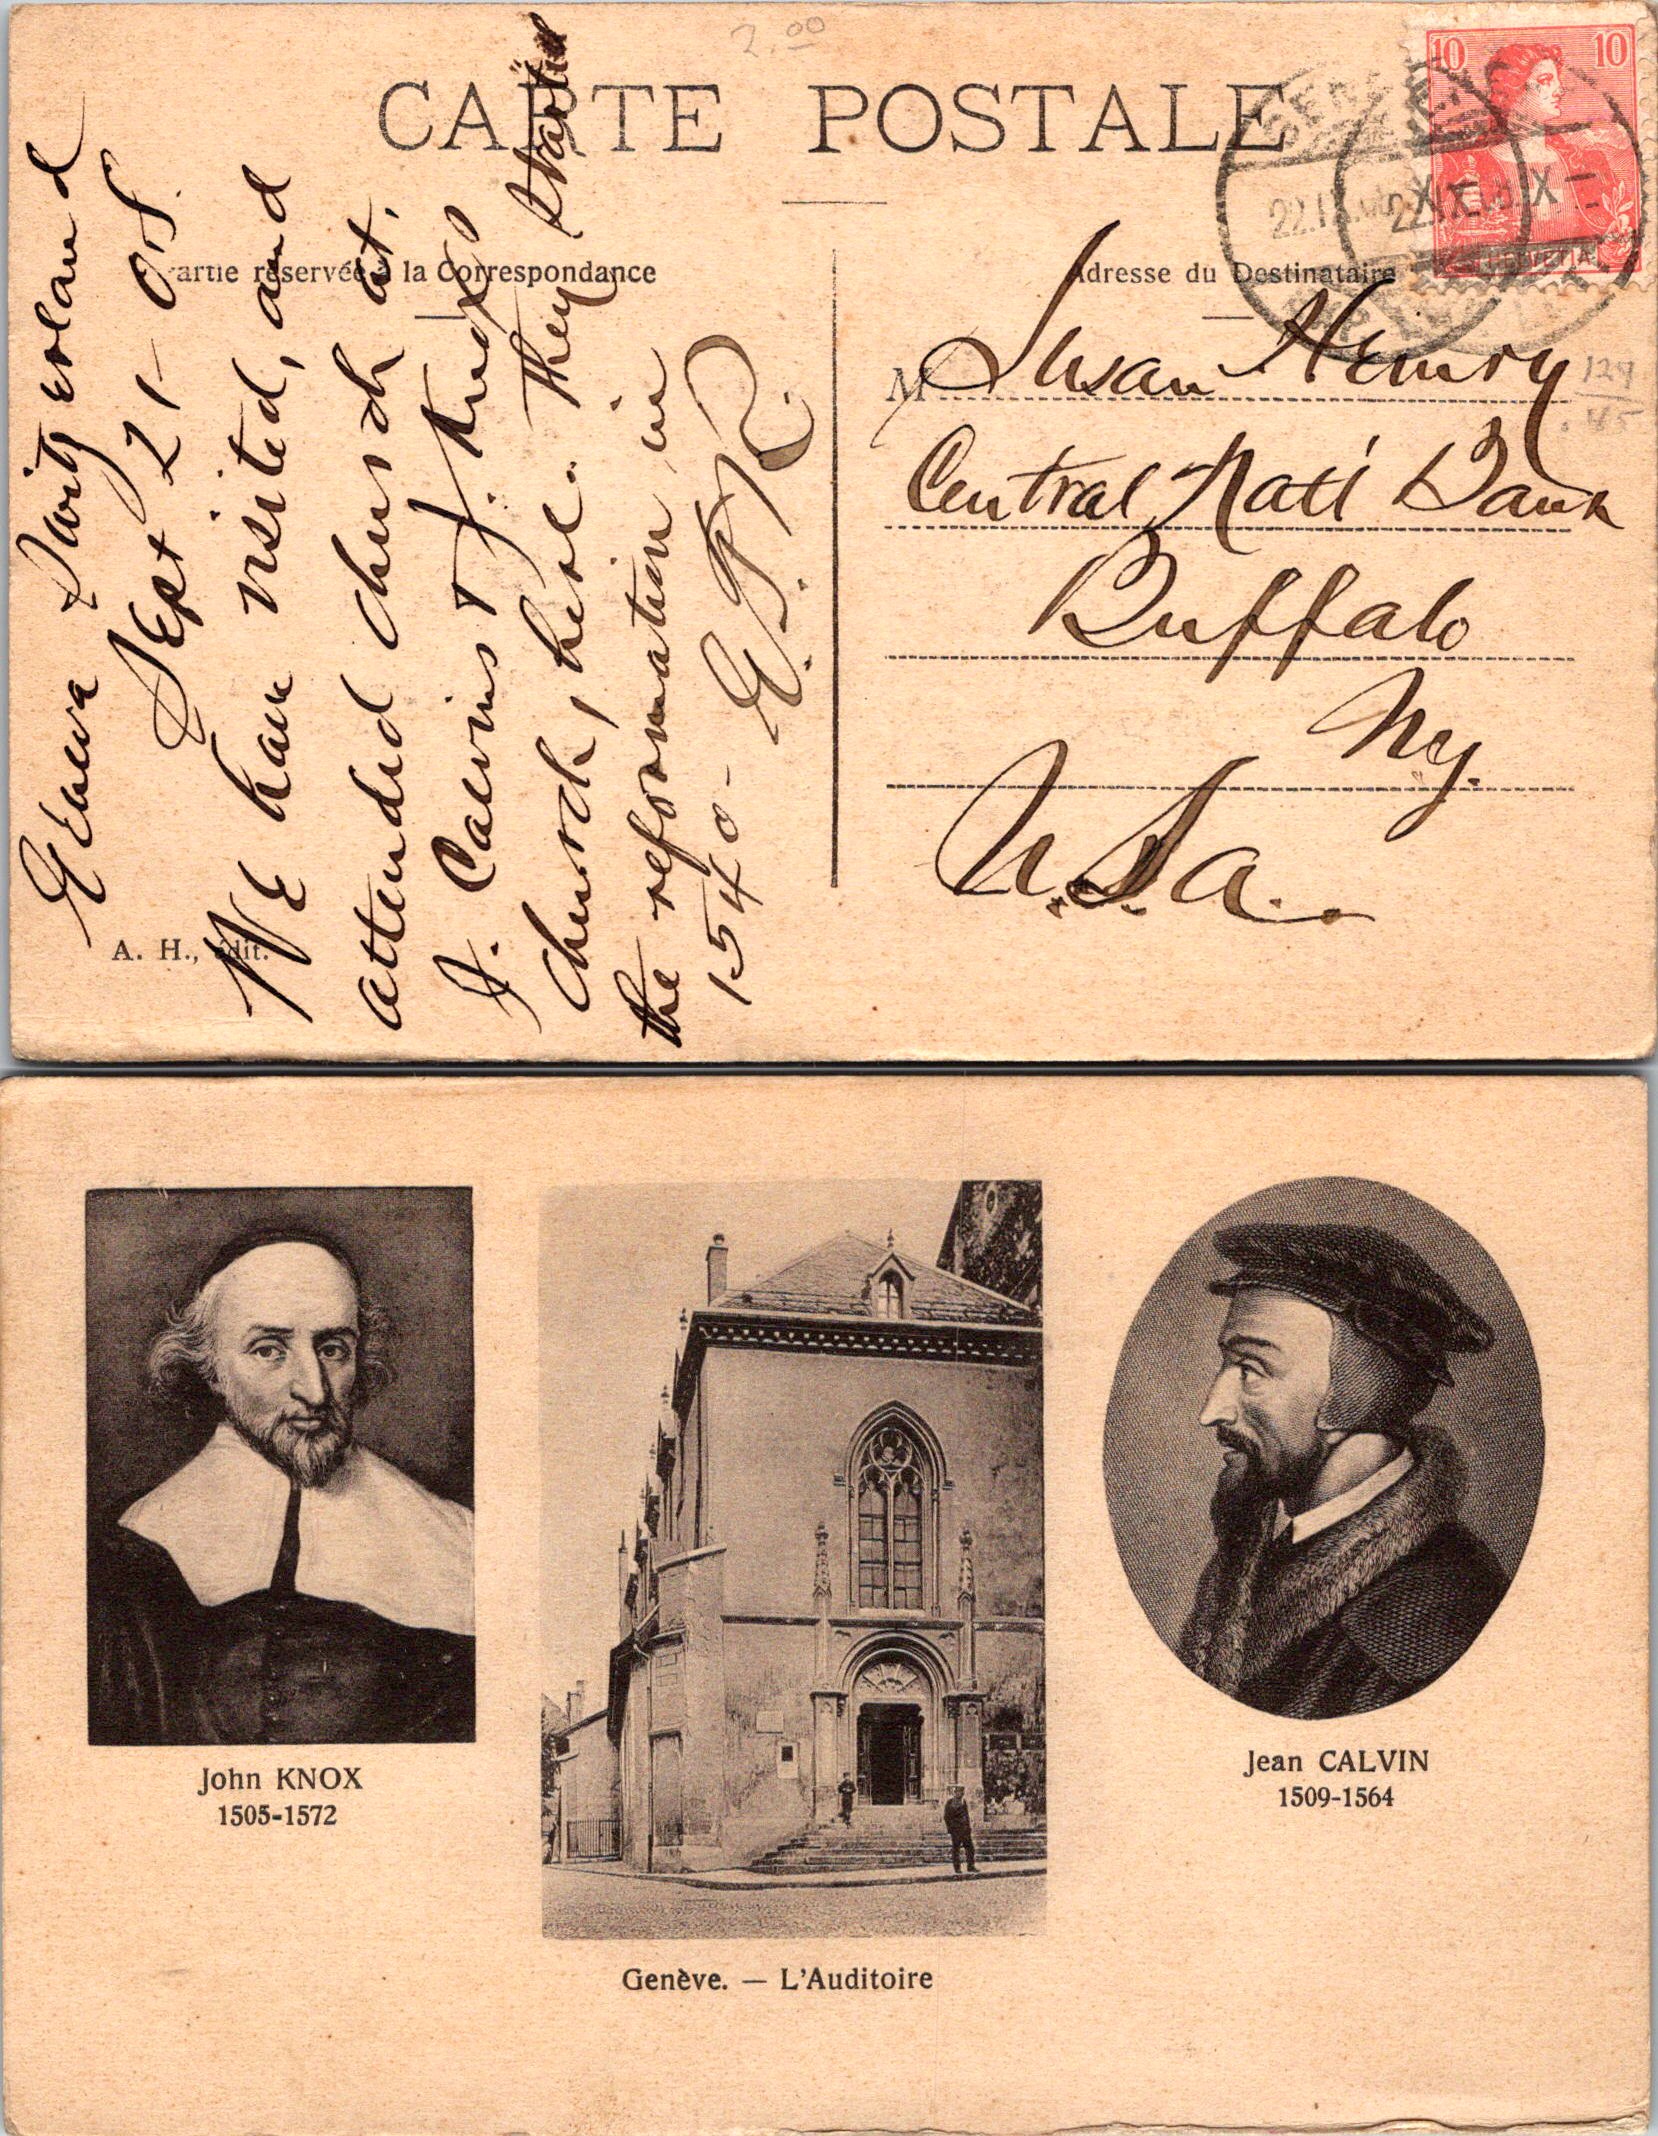 2.00
CARTE POSTALE
Partie réservée à la Correspondance
Adresse du Destinataire
10 10
HELVETIA
22.IX.08.X
22.IX.08.X
Geneva Switzerland
Sept 21-08.
We have visited, and
attended church at,
J. Calvins & J. Knox
church, here. They started
the reformation in
1540-
M Susan Henry
Central Natl Bank
Buffalo
Ny.
U.S.a.
129
.45
A. H., édit.
John KNOX
1505-1572
Genève. — L'Auditoire
Jean CALVIN
1509-1564